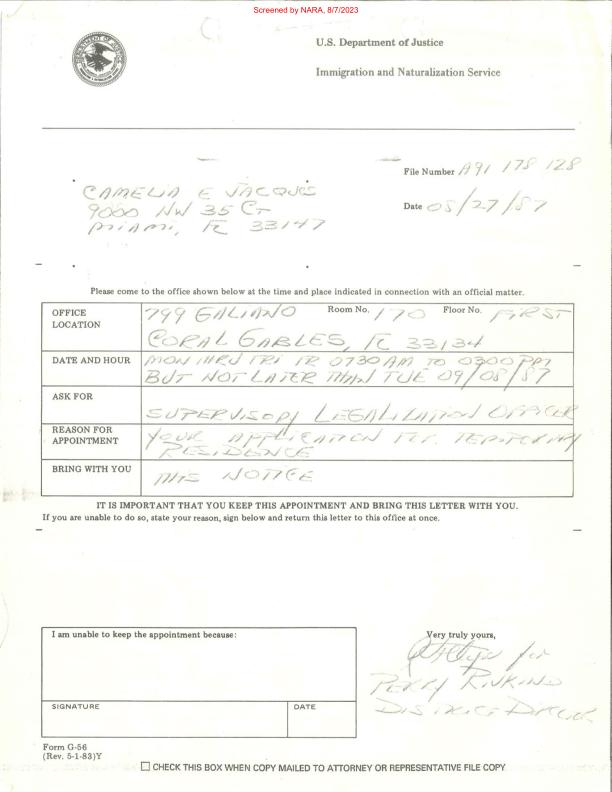 Screened by NARA, 8/7/2023
U.S. Department of Justice
Immigration and Naturalization Service
File Number A91 178 128
CAMELIA E JACQUES
9000 NW 35 CT
Date 08/27/87
MIAMI, FL 33147
Please come to the office shown below at the time and place indicated in connection with an official matter.
OFFICE LOCATION 799 GALIANO Room No. 170 Floor No. FIRST
CORAL GABLES, FL 33134
DATE AND HOUR MON THRU FRI FR 0730 AM TO 0300 PM
BUT NOT LATER THAN TUE 09/08/87
ASK FOR
SUPERVISORY LEGALIZATION OFFICER
REASON FOR APPOINTMENT YOUR APPLICATION FOR TEMPORARY
RESIDENCE
BRING WITH YOU THIS NOTICE
IT IS IMPORTANT THAT YOU KEEP THIS APPOINTMENT AND BRING THIS LETTER WITH YOU.
If you are unable to do so, state your reason, sign below and return this letter to this office at once.
I am unable to keep the appointment because:
Very truly yours,
for
PERRY RIVKIND
DISTRICT DIRECTOR
SIGNATURE DATE
Form G-56
(Rev. 5-1-83)Y
CHECK THIS BOX WHEN COPY MAILED TO ATTORNEY OR REPRESENTATIVE FILE COPY